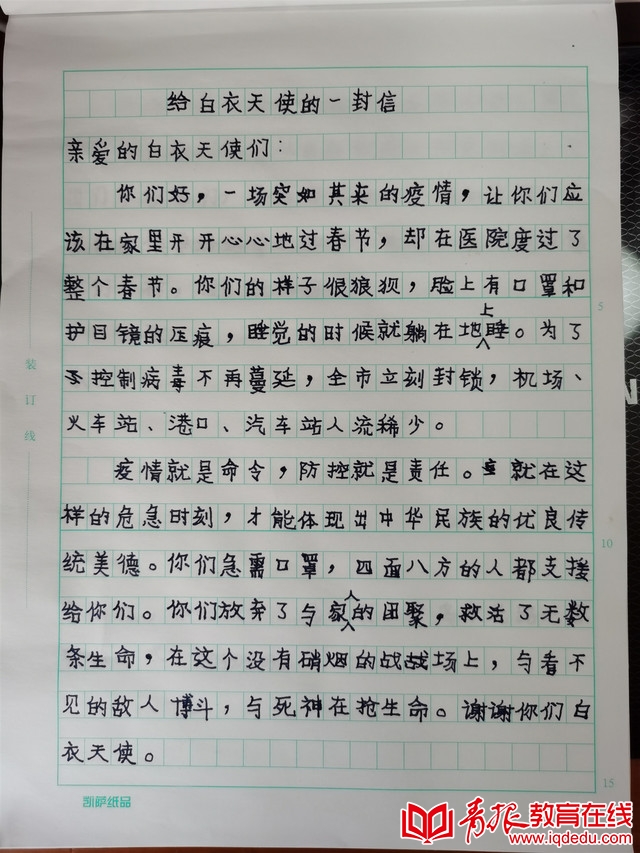 给白衣天使的一封信
亲爱的白衣天使们：
你们好，一场突如其来的疫情，让你们应
该在家里开开心心地过春节，却在医院度过了
整个春节。你们的样子很狼狈，脸上有口罩和
护目镜的压痕，睡觉的时候就躺在地上睡。为了
控制病毒不再蔓延，全市立刻封锁，机场、
火车站、港口、汽车站人流稀少。
疫情就是命令，防控就是责任。就在这
样的危急时刻，才能体现出中华民族的优良传
统美德。你们急需口罩，四面八方的人都支援
给你们。你们放弃了与家人的团聚，救活了无数
条生命，在这个没有硝烟的战战场上，与看不
见的敌人博斗，与死神在抢生命。谢谢你们白
衣天使。
装订线
5
10
15
凯萨纸品
青报教育在线
www.iqdedu.com